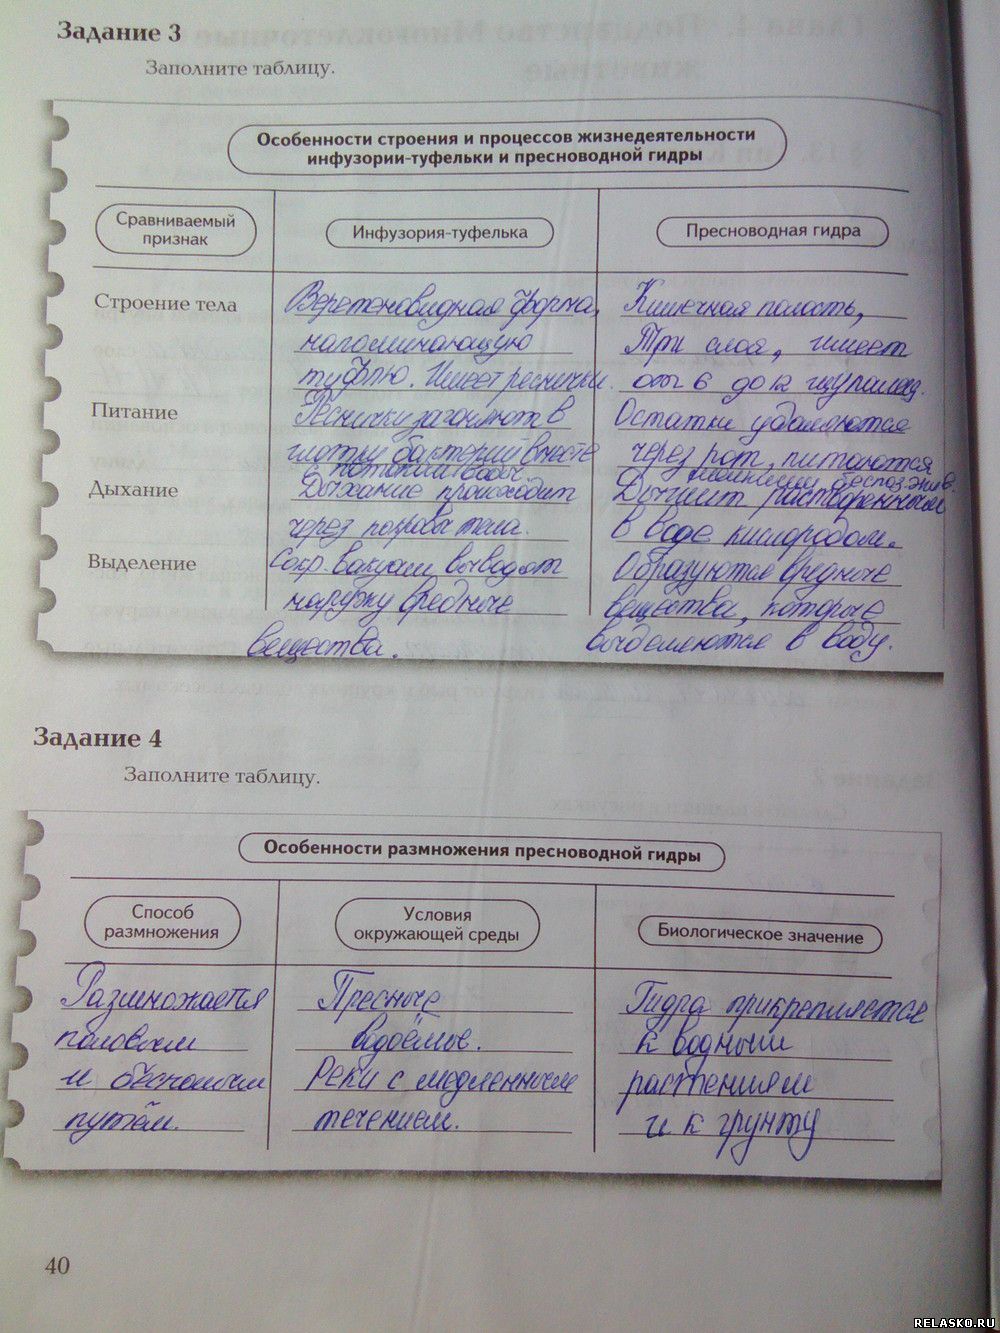 Задание 3
Заполните таблицу.
Особенности строения и процессов жизнедеятельности
инфузории-туфельки и пресноводной гидры
Сравниваемый
признак
Инфузория-туфелька
Пресноводная гидра
Строение тела
Веретеновидная форма,
напоминающую
туфлю. Имеет реснички.
Кишечная полость,
Три слоя, имеет
от 6 до 12 щупалец.
Питание
Реснички загоняют в
глотку бактерий вместе
с потоком воды
Остатки удаляются
через рот, питаются
беспозвнив.
Дыхание
Дыхание происходит
через покровы тела.
Дышит растворенным
в воде кислородом.
Выделение
Сокр. вакуоли выводят
наружу вредные
вещества.
Образуются вредные
вещества, которые
выделяются в воду.
Задание 4
Заполните таблицу.
Особенности размножения пресноводной гидры
Способ
размножения
Условия
окружающей среды
Биологическое значение
Размножается
половым
и бесполым
путём.
Пресные
водоёмы.
Реки с медленным
течением.
Гидра прикрепляется
к водным
растениям
и к грунту
40
RELASKO.RU